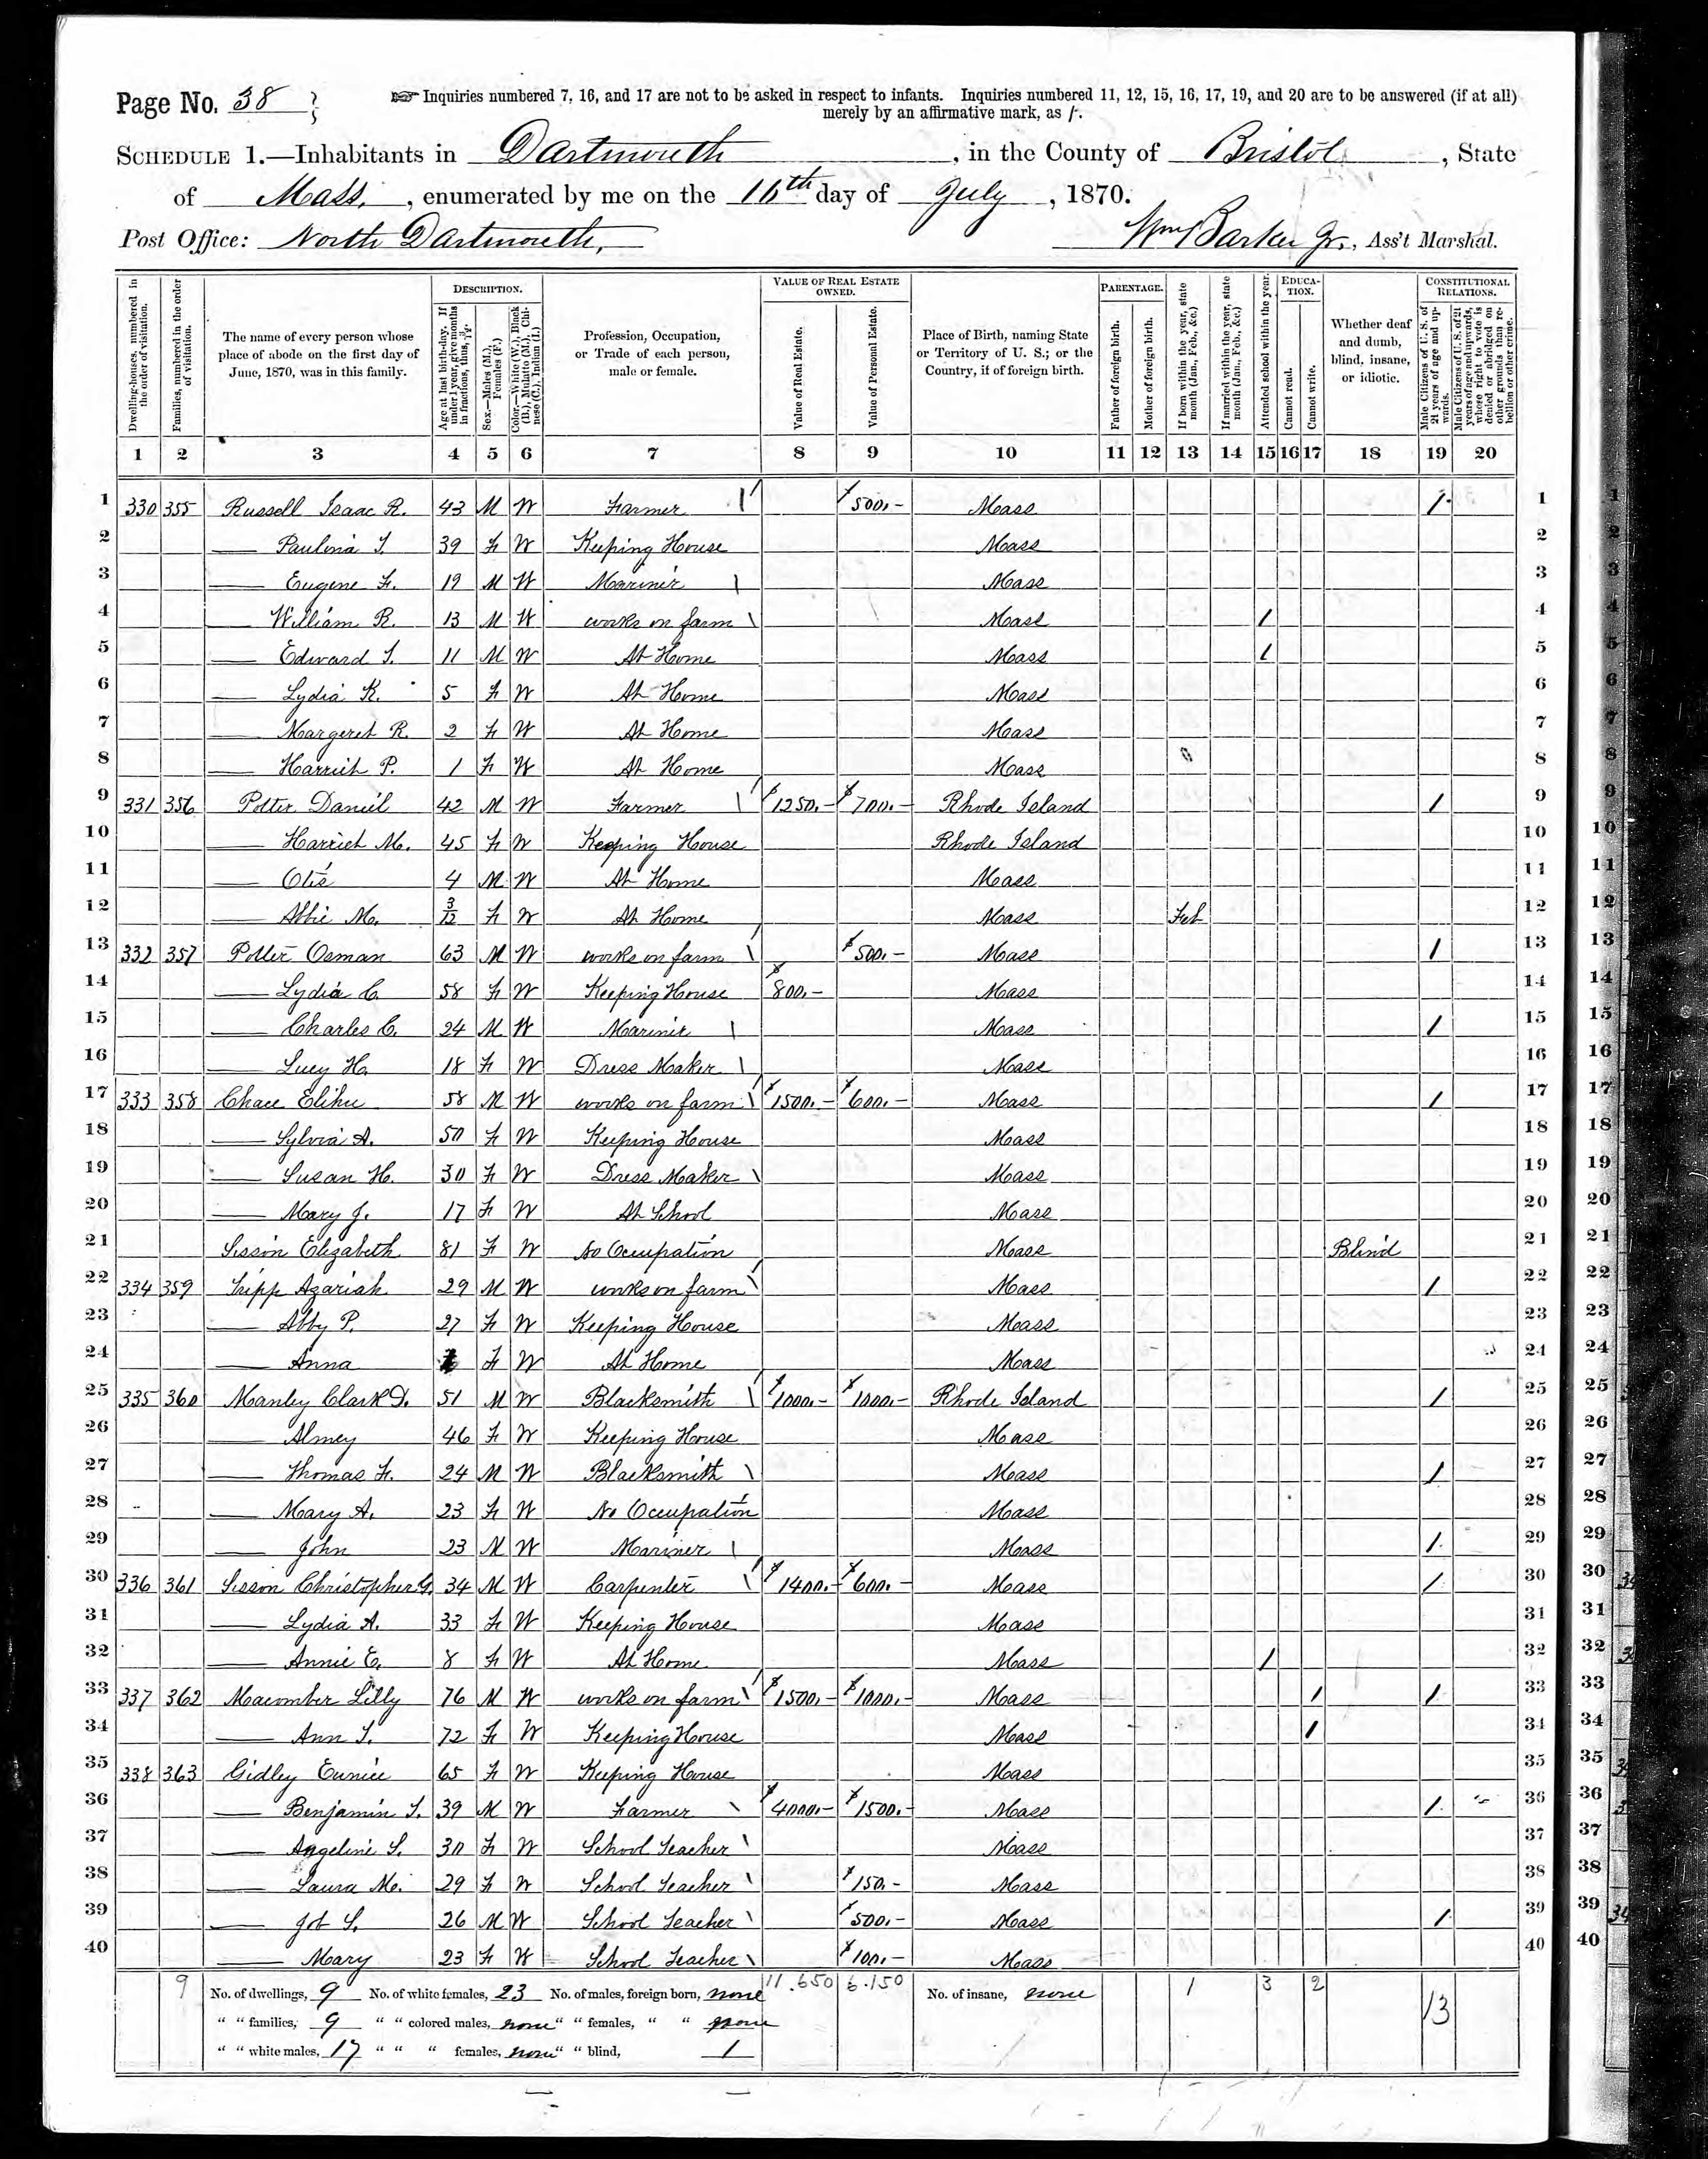 Page No. 38
☞ Inquiries numbered 7, 16, and 17 are not to be asked in respect to infants. Inquiries numbered 11, 12, 15, 16, 17, 19, and 20 are to be answered (if at all)
merely by an affirmative mark, as /.
SCHEDULE 1.—Inhabitants in Dartmouth, in the County of Bristol, State
of Mass., enumerated by me on the 16th day of July, 1870.
Post Office: North Dartmouth, Wm Barker Jr., Ass't Marshal.
Dwelling-houses, numbered in the order of visitation.
Families, numbered in the order of visitation.
The name of every person whose place of abode on the first day of June, 1870, was in this family.
DESCRIPTION.
Age at last birth-day. If under 1 year, give months in fractions, thus, 3/12.
Sex.—Males (M.), Females (F.)
Color.—White (W.), Black (B.), Mulatto (M.), Chinese (C.), Indian (I.)
Profession, Occupation, or Trade of each person, male or female.
VALUE OF REAL ESTATE OWNED.
Value of Real Estate.
Value of Personal Estate.
Place of Birth, naming State or Territory of U. S.; or the Country, if of foreign birth.
PARENTAGE.
Father of foreign birth.
Mother of foreign birth.
If born within the year, state month (Jan. Feb., &c.)
If married within the year, state month (Jan. Feb., &c.)
Attended school within the year.
EDUCATION.
Cannot read.
Cannot write.
Whether deaf and dumb, blind, insane, or idiotic.
CONSTITUTIONAL RELATIONS.
Male Citizens of U. S. of 21 years of age and upwards.
Male Citizens of U. S. of 21 years of age and upwards, whose right to vote is denied or abridged on other grounds than rebellion or other crime.
1 2 3 4 5 6 7 8 9 10 11 12 13 14 15 16 17 18 19 20
1 330 355 Russell Isaac R. 43 M W Farmer $500.- Mass / 1
2 — Paulina T. 39 F W Keeping House Mass 2
3 — Eugene F. 19 M W Mariner Mass 3
4 — William R. 13 M W works on farm Mass / 4
5 — Edward T. 11 M W At Home Mass / 5
6 — Lydia K. 5 F W At Home Mass 6
7 — Margeret R. 2 F W At Home Mass 7
8 — Harriet P. 1 F W At Home Mass 8
9 331 356 Potter Daniel 42 M W Farmer $1250.- $700.- Rhode Island / 9
10 — Harriet M. 45 F W Keeping House Rhode Island 10
11 — Otis 4 M W At Home Mass 11
12 — Abbie M. 3/12 F W At Home Mass Feb 12
13 332 357 Potter Osman 63 M W works on farm $500.- Mass / 13
14 — Lydia C. 58 F W Keeping House $800.- Mass 14
15 — Charles C. 24 M W Mariner Mass / 15
16 — Lucy H. 18 F W Dress Maker Mass 16
17 333 358 Chace Elihu 58 M W works on farm $1500.- $600.- Mass / 17
18 — Sylvia A. 50 F W Keeping House Mass 18
19 — Susan H. 30 F W Dress Maker Mass 19
20 — Mary J. 17 F W At School Mass 20
21 Sisson Elizabeth 81 F W No Occupation Mass Blind 21
22 334 359 Tripp Azariah 29 M W works on farm Mass / 22
23 — Abby P. 27 F W Keeping House Mass 23
24 — Anna F W At Home Mass 24
25 335 360 Manley Clark D. 51 M W Blacksmith $1000.- $1000.- Rhode Island / 25
26 — Almey 46 F W Keeping House Mass 26
27 — Thomas F. 24 M W Blacksmith Mass / 27
28 — Mary A. 23 F W No Occupation Mass 28
29 — John 23 M W Mariner Mass / 29
30 336 361 Sisson Christopher G. 34 M W Carpenter $1400.- $600.- Mass / 30
31 — Lydia A. 33 F W Keeping House Mass 31
32 — Annie E. 8 F W At Home Mass / 32
33 337 362 Macomber Lilly 76 M W works on farm $1500.- $1000.- Mass / / 33
34 — Ann T. 72 F W Keeping House Mass / 34
35 338 363 Gidley Eunice 65 F W Keeping House Mass 35
36 — Benjamin T. 39 M W Farmer $4000.- $1500.- Mass / 36
37 — Angeline S. 30 F W School Teacher Mass 37
38 — Laura M. 29 F W School Teacher $150.- Mass 38
39 — Job S. 26 M W School Teacher $500.- Mass / 39
40 — Mary 23 F W School Teacher $100.- Mass 40
9 No. of dwellings, 9 No. of white females, 23 No. of males, foreign born, none 11.650 6.150 No. of insane, none 1 3 2 13
" " families, 9 " " colored males, none " " females, " " none
" " white males, 17 " " " females, none " " blind, 1